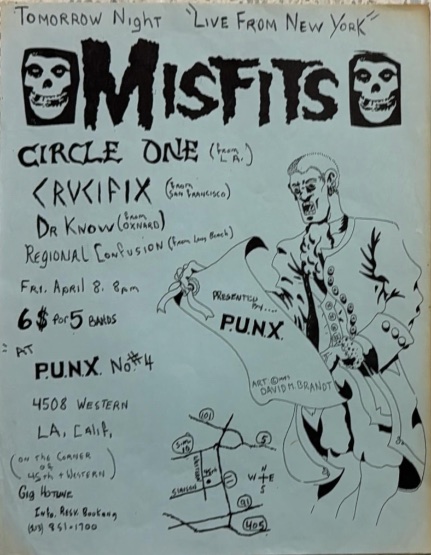 Tomorrow Night "Live From New York"
MISFITS
CIRCLE ONE (from L.A.)
CRUCIFIX (from SAN FRANCISCO)
DR KNOW (from OXNARD)
REGIONAL CONFUSION (from Long Beach)
Fri. April 8. 8pm
6$ for 5 BANDS
AT
P.U.N.X. No#4
4508 WESTERN
LA, Calif,
(ON THE CORNER
OF
45th + WESTERN)
Gig HOTLINE
Info. Resv. Booking
851-1700
PRESENTED
BY....
P.U.N.X.
ART ©
DAVID M. BRANDT
101
5
WESTERN
45th
11
N
W E
S
91
405